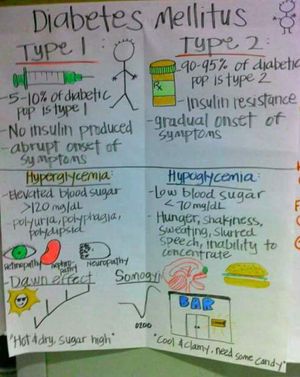 Diabetes Mellitus
Type 1:
- 5-10% of diabetic
pop is type 1
- No insulin produced
- abrupt onset of
symptoms
Type 2:
Rx
- 90-95% of diabetic
pop is type 2
- Insulin resistance
- gradual onset of
symptoms
Hyperglycemia:
- Elevated blood sugar
>120 mg/dL
- polyuria, polyphagia,
polydipsia
Retinopathy
Nephropathy
Neuropathy
Dawn effect
"Hot & dry, sugar high"
Hypoglycemia:
- Low blood sugar
<70 mg/dL
- Hunger, shakiness,
sweating, slurred
speech, inability to
concentrate
Somogyi
0200
BAR
"Cool & clamy, need some candy"